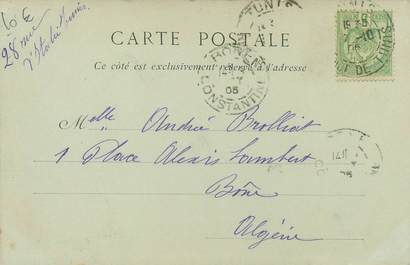 10 €
28 rue
CARTE POSTALE
Ce côté est exclusivement réservé à l'adresse
TUNIS
BONE
CONSTANTINE
05
Melle Andrée Brolliat
1 Place Alexis Lambert
Bône
Algérie